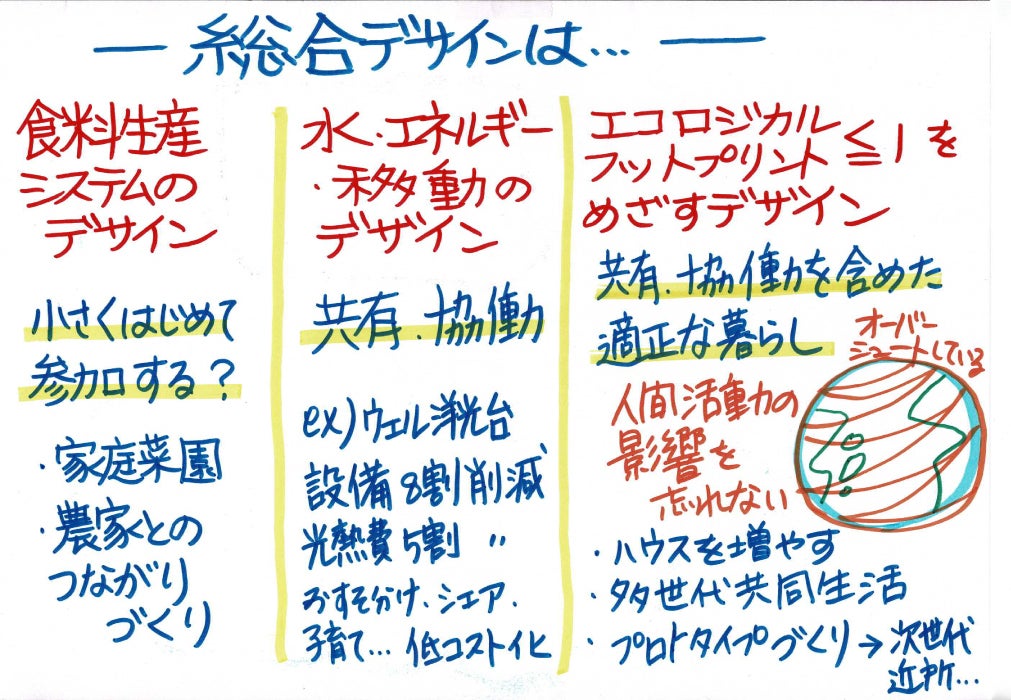 ― 総合デザインは… ―
食料生産
システムの
デザイン
小さくはじめて
参加する？
・家庭菜園
・農家との
つながり
づくり
水・エネルギー
・移動の
デザイン
共有・協働
ex)ウェル洋光台
設備8割削減
光熱費5割 〃
おすそ分け、シェア、
子育て… 低コスト化
エコロジカル
フットプリント≦1を
めざすデザイン
共有・協働を含めた
適正な暮らし
オーバー
シュートしている
人間活動の
影響を
忘れない
・ハウスを増やす
・多世代共同生活
・プロトタイプづくり→次世代
近所…